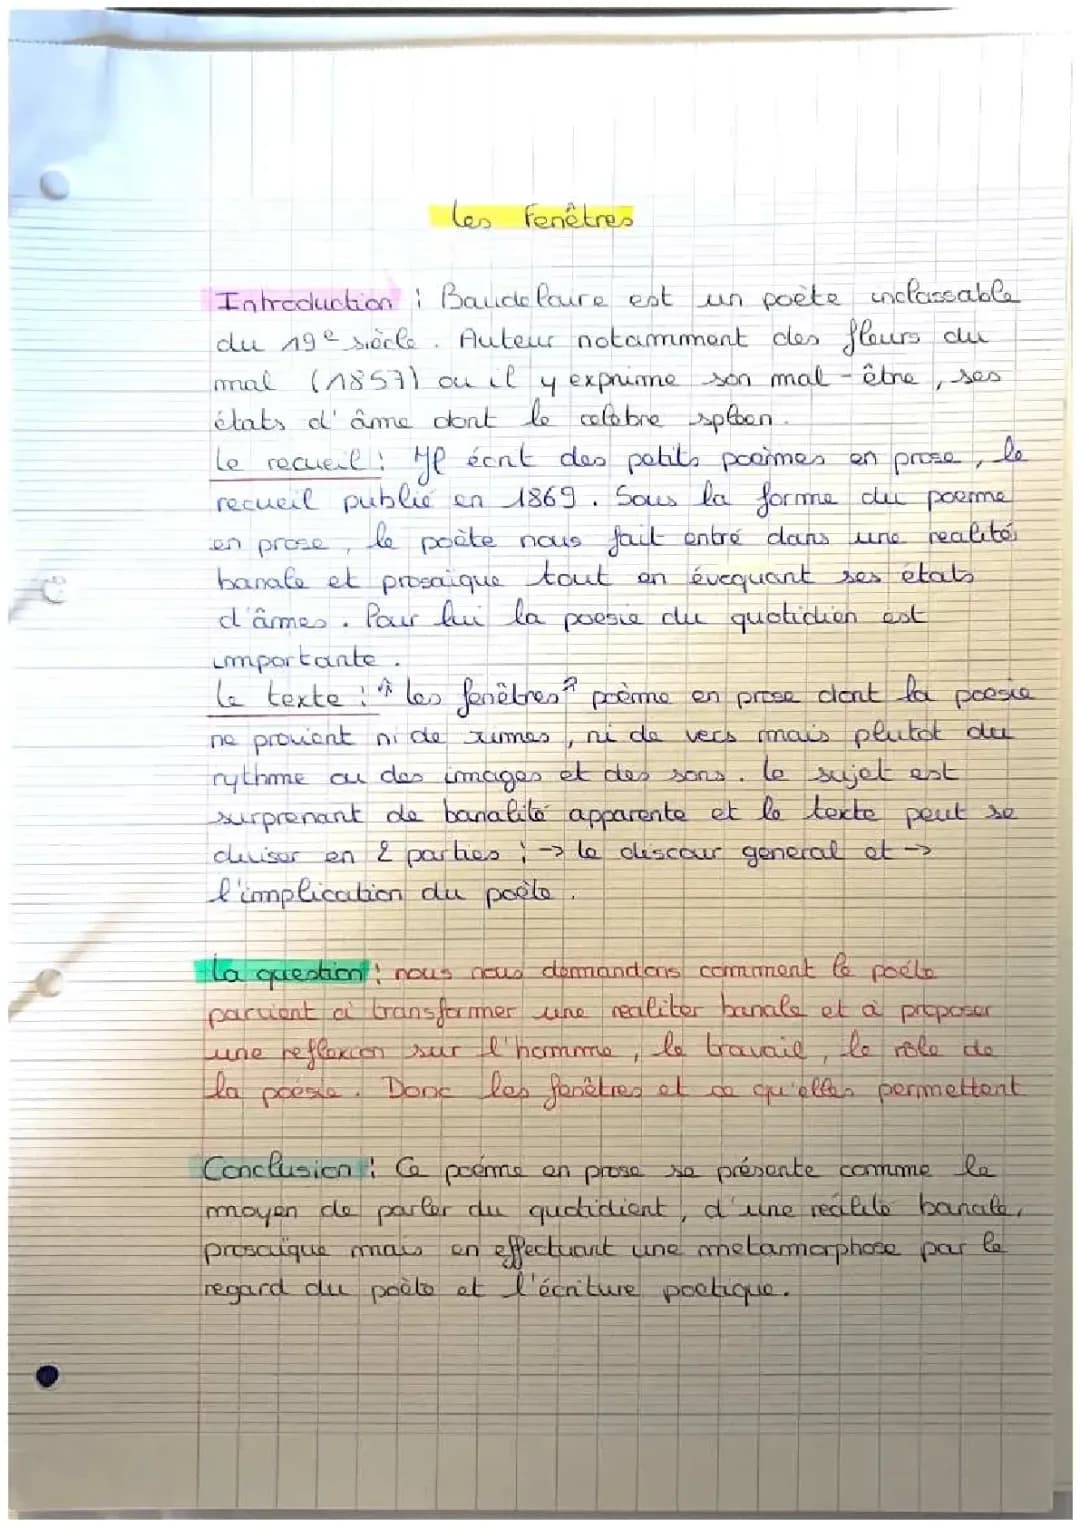 Les Fenêtres
Introduction : Baudelaire est un poète inclassable
du 19e siècle. Auteur notamment des fleurs du
mal (1857) ou il y exprime son mal-être, ses
états d'âme dont le celebre spleen.
Le recueil : Il écrit des petits poèmes en prose, le
recueil publié en 1869. Sous la forme du poeme
en prose, le poète nous fait entré dans une realité
banale et prosaïque tout en évequant ses états
d'âmes. Pour lui la poesie du quotidien est
importante.
Le texte : "les fenêtres" poème en prose dont la poesie
ne provient ni de rimes, ni de vers mais plutot du
rythme ou des images et des sons. Le sujet est
surprenant de banalité apparente et le texte peut se
diviser en 2 parties : -> le discour general et ->
l'implication du poète.
La question : nous nous demandons comment le poète
parvient à transformer une realiter banale et à proposer
une reflexion sur l'homme, le travail, le rôle de
la poesie. Donc les fenêtres et ce qu'elles permettent
Conclusion : Ce poéme en prose se présente comme le
moyen de parler du quotidient, d'une réalité banale,
prosaïque mais en effectuant une metamorphose par le
regard du poète et l'écriture poetique.